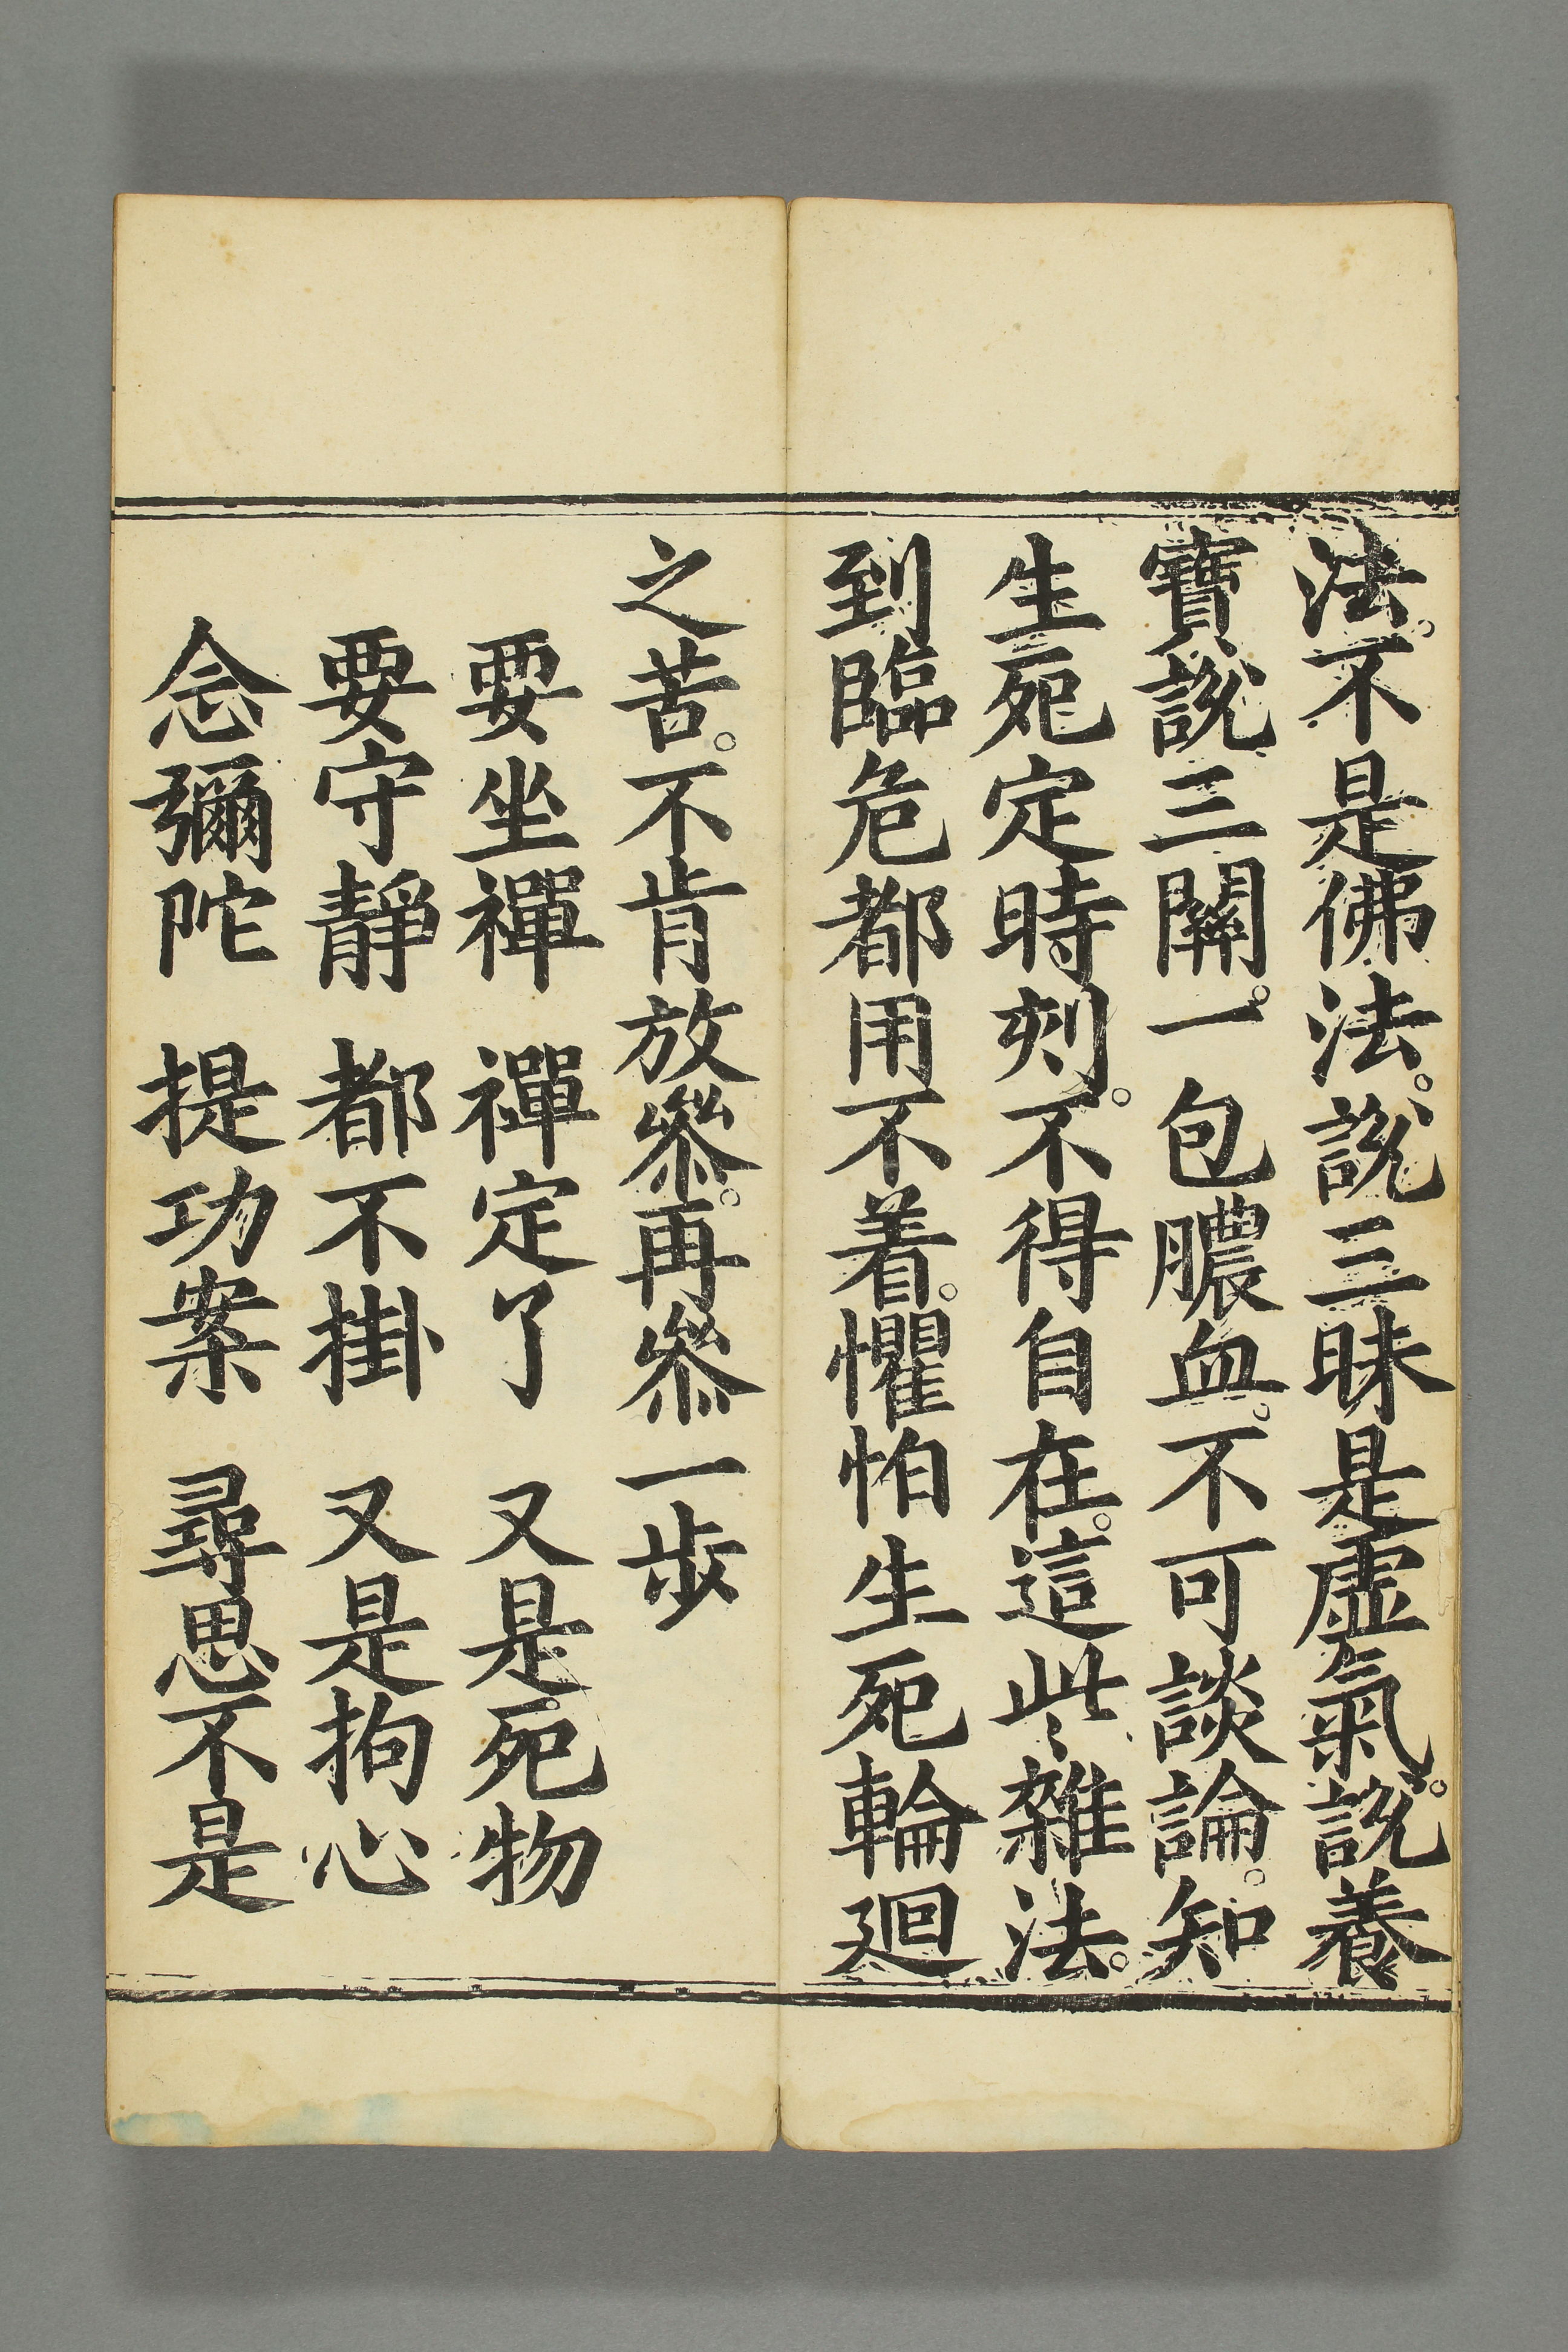 法。不是佛法。說三昧是虛氣。說養
寶說三關。一包膿血。不可談論。知
生死定時刻。不得自在。這些雜法。
到臨危都用不着。懼怕生死輪廻
之苦。不肯放參。再參一步
要坐禪　禪定了　又是死物
要守靜　都不掛　又是拘心
念彌陀　提功案　尋思不是